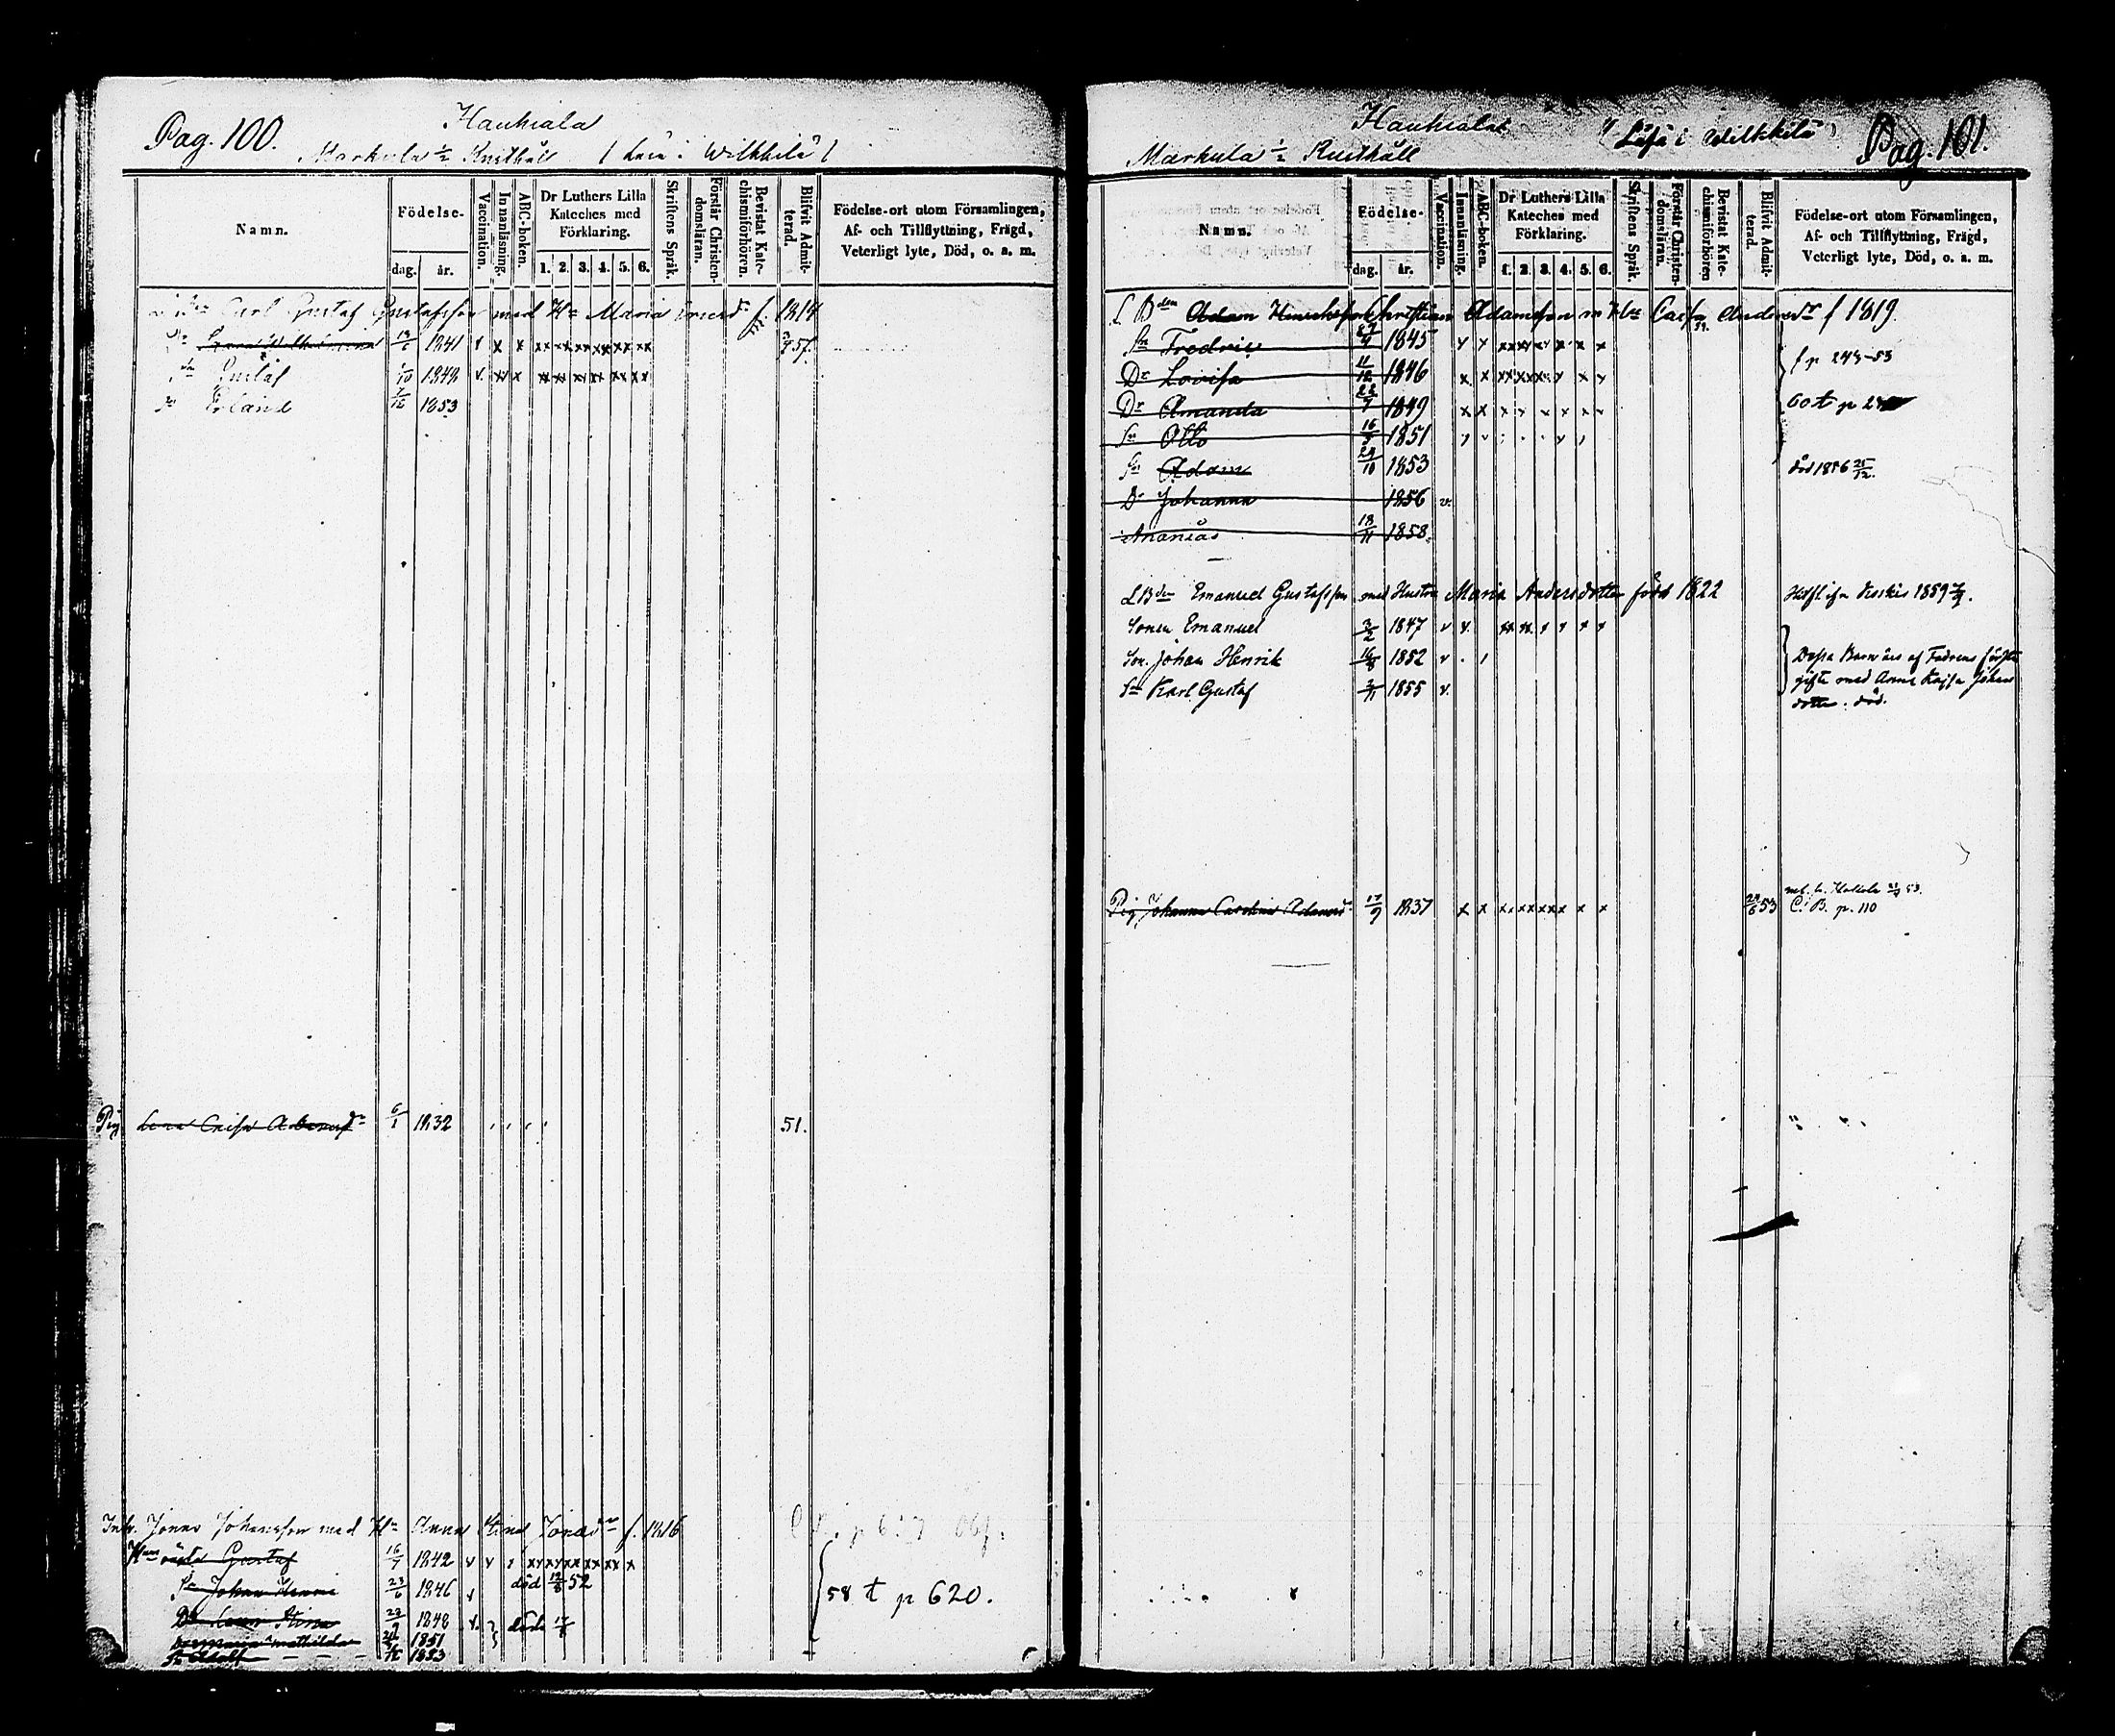 Pag. 100.
Hauhiala
Markula ½ Rusthåll ( Läsa i Wilkkilä )
Namn.
Födelse-
dag. år.
Vaccination.
Innanläsning.
ABC-boken.
Dr Luthers Lilla Kateches med Förklaring.
1. 2. 3. 4. 5. 6.
Skriftens Språk.
Förstår Christendomsläran.
Bevistat Katechismiförhören.
Blifvit Admitterad.
Födelse-ort utom Församlingen, Af- och Tillflyttning, Frägd, Veterligt lyte, Död, o. s. m.
Carl Gustaf Gustafsson med Hu Maria f. 1814
13/6 1841 v x x xx xx xx xx xx xx 57.
Gustaf 1/10 1849 v. xx x xx xx xx xx xx xx
Erland 7/12 1853
Pig Lena Caisa 6/1 1832 51.
Inh. Jonas Johansson med Hu Anna Stina Jonasdr f. 1816
Gustaf 16/7 1842 v v x xx xx xx xx xx x
Sn Johan Henric 23/6 1846 v död 12/8 52
Dr Lena Stina 23/9 1848 v. döde 17/8
Dr Maria Mathilda 1851
Sn Adolf 1853
58 t p 620.
Pag. 101.
Hauhiala
Markula ½ Rusthåll
( Läsa i Wilkkilä )
Namn.
Födelse-
dag. år.
Vaccination.
Innanläsning.
ABC-boken.
Dr Luthers Lilla Kateches med Förklaring.
1. 2. 3. 4. 5. 6.
Skriftens Språk.
Förstår Christendomsläran.
Bevistat Katechismiförhören
Blifvit Admitterad.
Födelse-ort utom Församlingen, Af- och Tillflyttning, Frägd, Veterligt lyte, Död, o. s. m.
L Bden Adam Christian Adamsson m Hu Caisa Andersdr f 1819.
Sn Fredric 27/4 1845
f p 243-53
Dr Lovisa 11/12 1846
Dr Amanda 22/7 1849
60 t p
Sn Otto 16/5 1851
Sn Adam 24/10 1853 död 1856 25/12.
Dr Johanna 1856 v.
Ananias 13/11 1858.
LBden Emanuel Gustafsson med Hustru Maria Andersdotter född 1822
1859
Sonen Emanuel 3/2 1847 v v. xx xx x x x x
Son. Johan Henrik 16/8 1852 v
Dessa Barn äro af Fadrens förra
Sn Karl Gustaf 2/11 1855 v.
gifte med Anna Kajsa Johans
dotter. död.
Pig. Johanna Carolina Adamsdr 17/9 1837 x x x x xx xx x x 53
C. B. p. 110